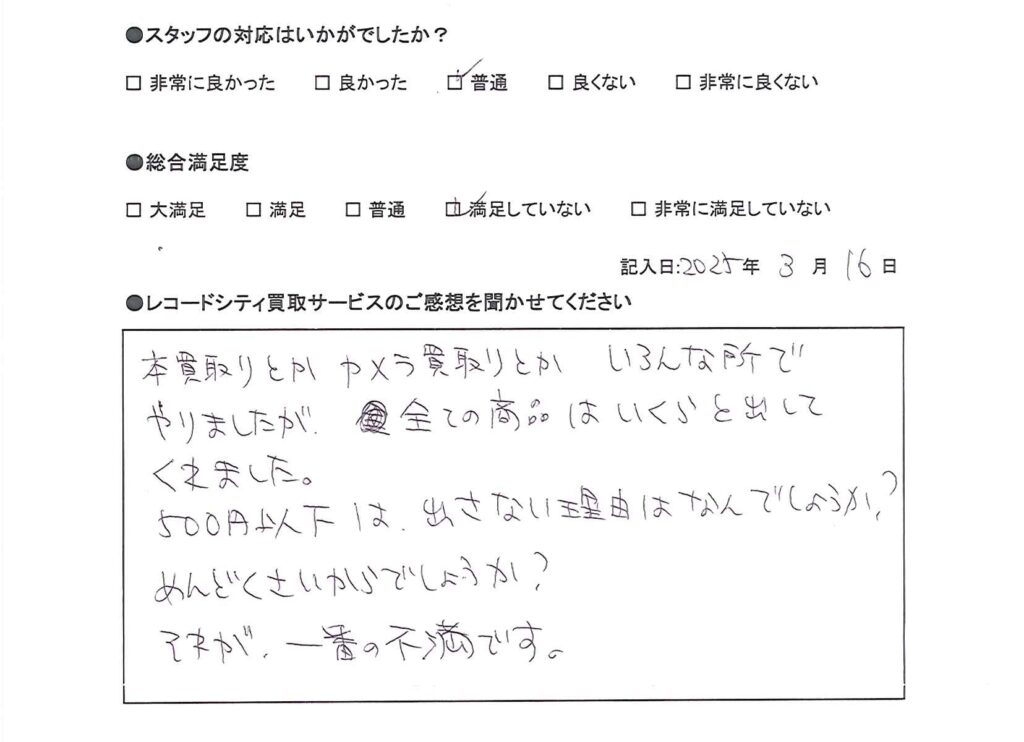 ●スタッフの対応はいかがでしたか？
□ 非常に良かった □ 良かった ☑ 普通 □ 良くない □ 非常に良くない
●総合満足度
□ 大満足 □ 満足 □ 普通 ☑ 満足していない □ 非常に満足していない
記入日:2025年 3 月 16 日
●レコードシティ買取サービスのご感想を聞かせてください
本買取りとか カメラ買取りとか いろんな所で
やりましたが、 全ての商品はいくらと出して
くれました。
500円以下は、出さない理由はなんでしょうか?
めんどくさいからでしょうか?
それが、一番の不満です。